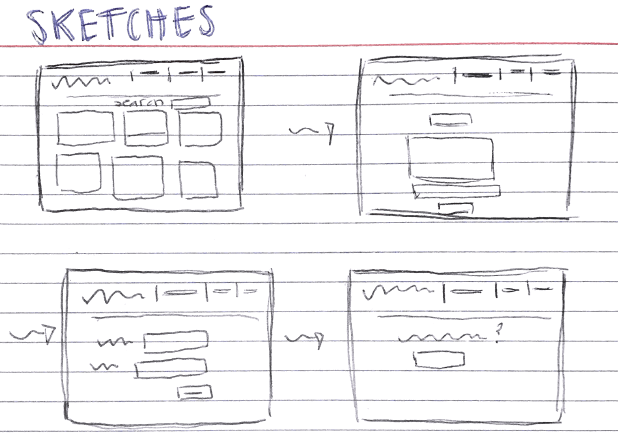 SKETCHES
search
?